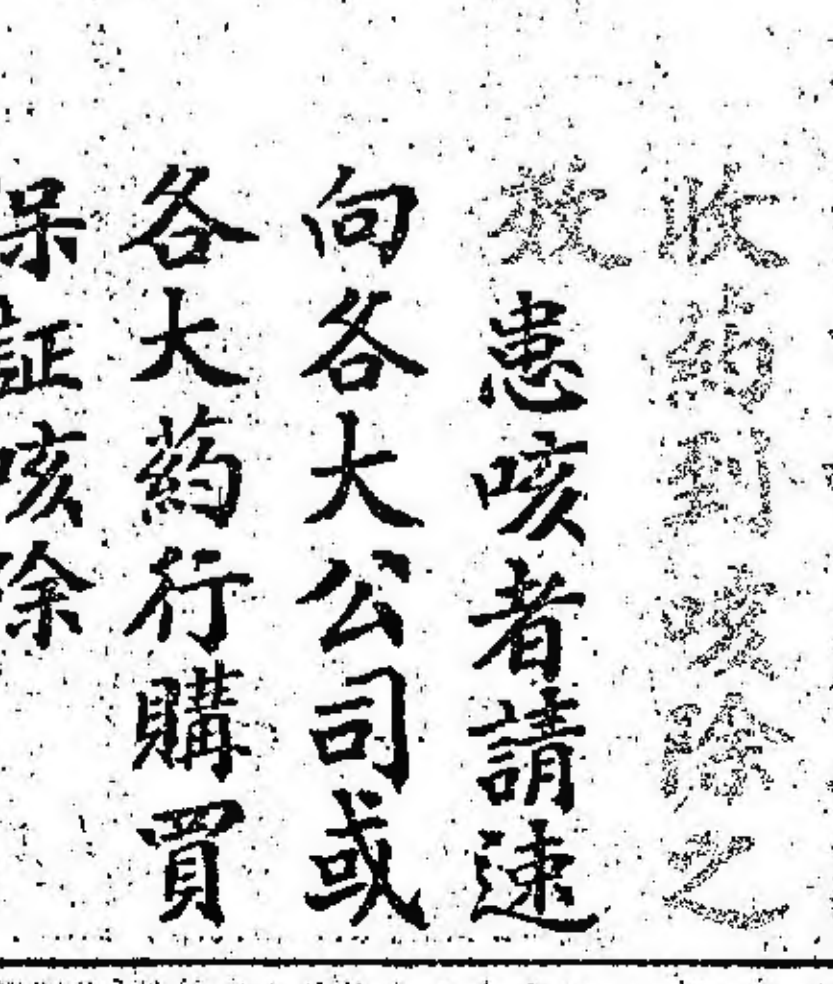 收药到咳除之
效患咳者請速
向各大公司或
各大药行購買
保証咳除